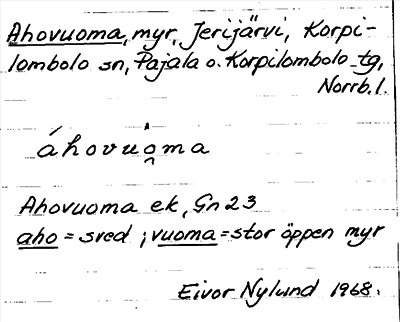 Ahovuoma, myr, Jerijärvi, Korpi-
lombolo sn, Pajala o. Korpilombolo tg,
Norrb. l.
áhovuo̯ma
Ahovuoma ek, Gn 23
aho = sved ; vuoma = stor öppen myr
Eivor Nylund 1968.